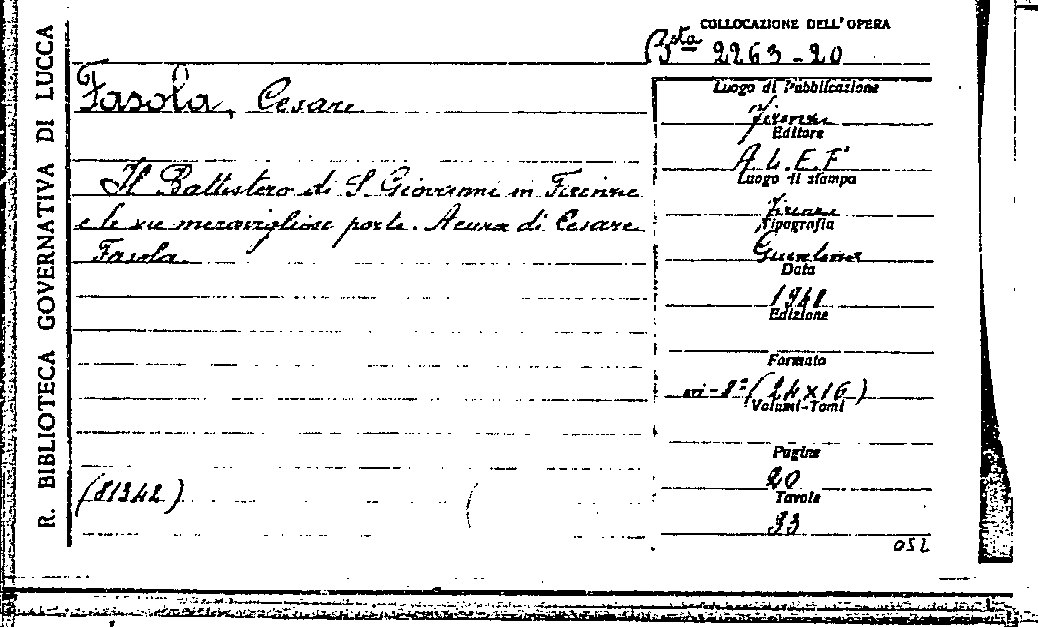 R. BIBLIOTECA GOVERNATIVA DI LUCCA
COLLOCAZIONE DELL'OPERA
Bsta 2263-20
Fasola, Cesare
Il Battistero di S. Giovanni in Firenze
e le sue meravigliose porte. A cura di Cesare
Fasola.
(81342)
Luogo di Pubblicazione
Firenze
Editore
A.L.E.F.
Luogo di stampa
Firenze
Tipografia
Data
Edizione
Formato
8° (24x16)
Volumi-Tomi
Pagine
20
Tavole
33